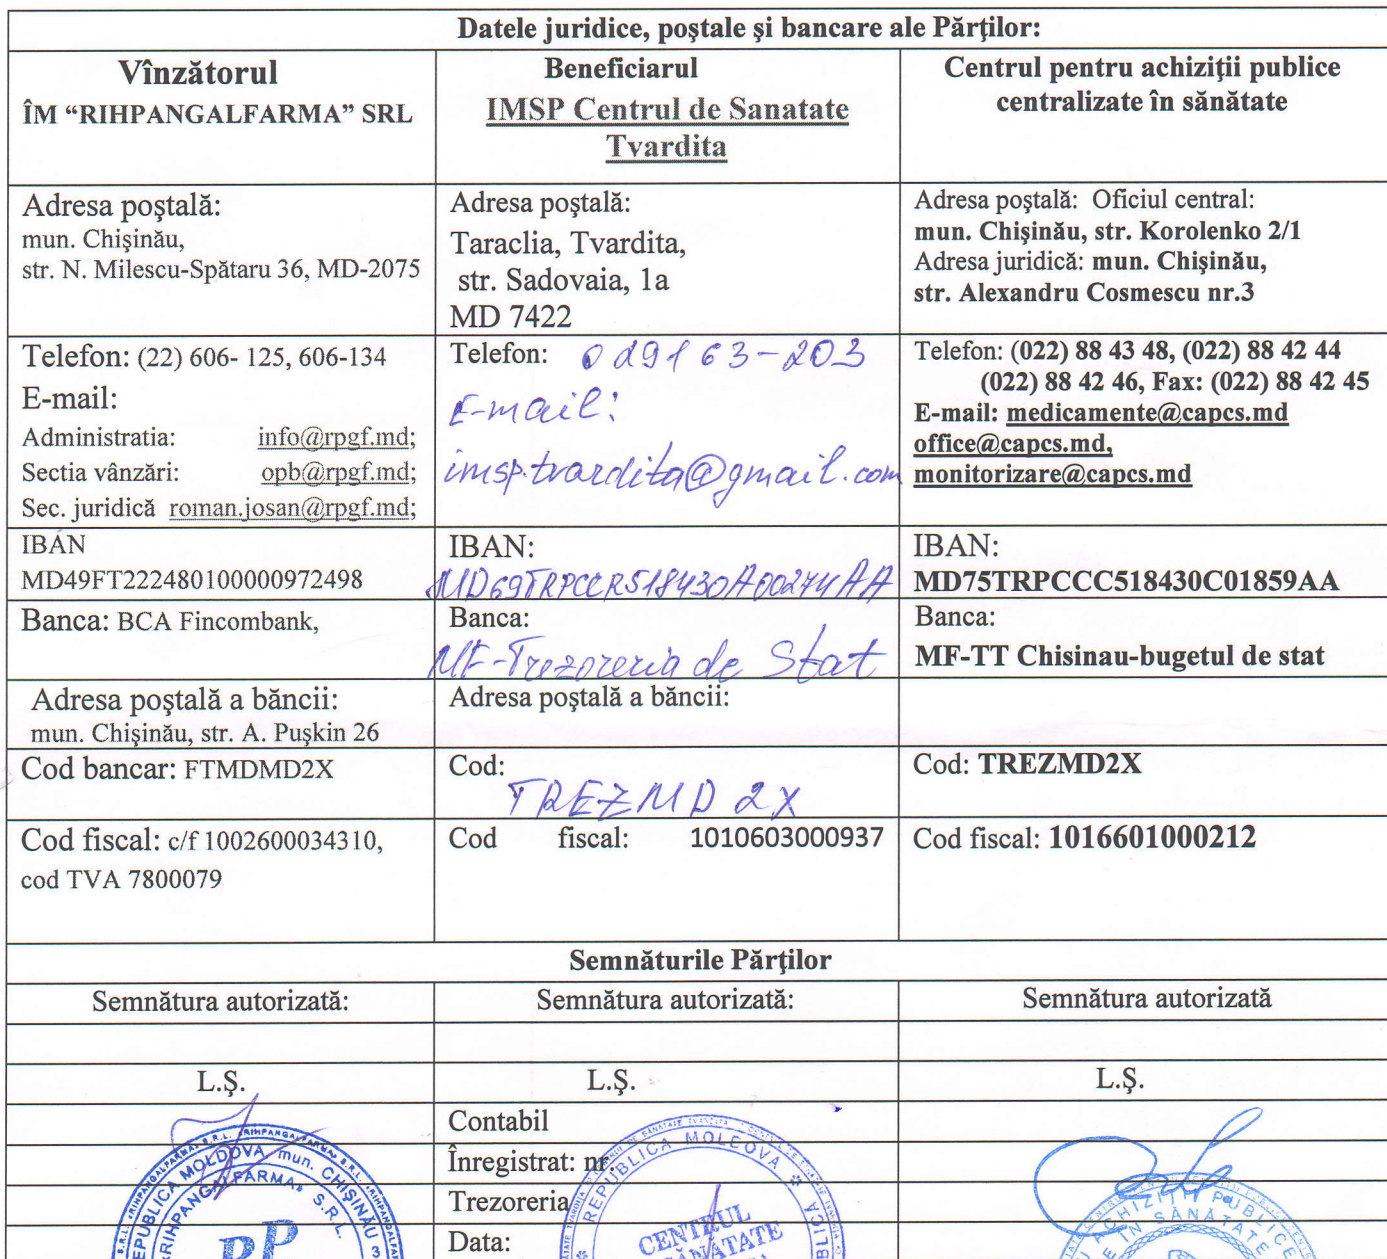 Datele juridice, poştale şi bancare ale Părţilor:
Vînzătorul
ÎM “RIHPANGALFARMA” SRL
Beneficiarul
IMSP Centrul de Sanatate
Tvardita
Centrul pentru achiziţii publice
centralizate în sănătate
Adresa poştală:
mun. Chişinău,
str. N. Milescu-Spătaru 36, MD-2075
Adresa poştală:
Taraclia, Tvardita,
str. Sadovaia, 1a
MD 7422
Adresa poştală: Oficiul central:
mun. Chişinău, str. Korolenko 2/1
Adresa juridică: mun. Chişinău,
str. Alexandru Cosmescu nr.3
Telefon: (22) 606- 125, 606-134
E-mail:
Administratia: info@rpgf.md;
Sectia vânzări: opb@rpgf.md;
Sec. juridică roman.josan@rpgf.md;
Telefon: 029163-203
E-mail:
imsp.tvardita@gmail.com
Telefon: (022) 88 43 48, (022) 88 42 44
(022) 88 42 46, Fax: (022) 88 42 45
E-mail: medicamente@capcs.md
office@capcs.md,
monitorizare@capcs.md
IBAN
MD49FT222480100000972498
IBAN:
MD69TRPCCR518430A00274AA
IBAN:
MD75TRPCCC518430C01859AA
Banca: BCA Fincombank,
Banca:
MF-Trezoreria de Stat
Banca:
MF-TT Chisinau-bugetul de stat
Adresa poştală a băncii:
mun. Chişinău, str. A. Puşkin 26
Adresa poştală a băncii:
Cod bancar: FTMDMD2X
Cod:
TREZMD2X
Cod: TREZMD2X
Cod fiscal: c/f 1002600034310,
cod TVA 7800079
Cod fiscal: 1010603000937
Cod fiscal: 1016601000212
Semnăturile Părţilor
Semnătura autorizată:
Semnătura autorizată:
Semnătura autorizată
L.Ş.
L.Ş.
L.Ş.
Contabil
Înregistrat: nr.
Trezoreria
Data:
REPUBLICA MOLDOVA, mun. CHIŞINĂU
«RIHPANGALFARMA» S.R.L.
REPUBLICA MOLDOVA
CENTRUL
SĂNĂTATE
ACHIZIŢII PUBLICE
ÎN SĂNĂTATE